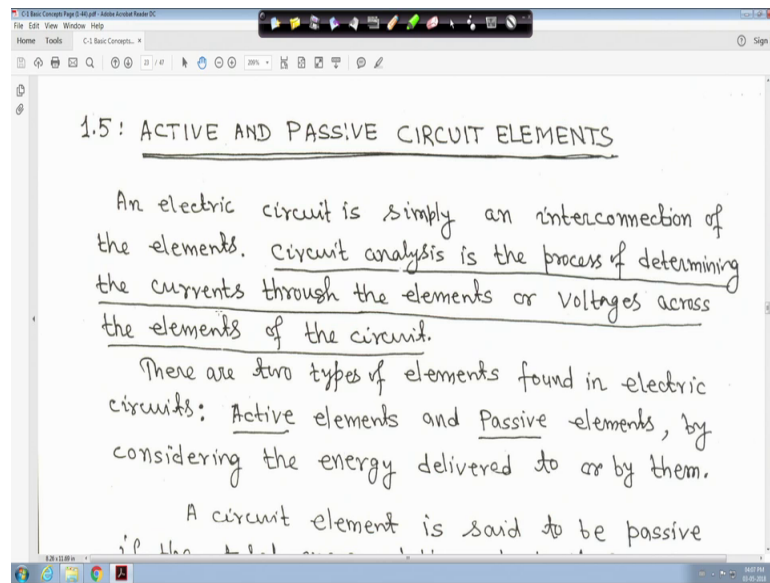 C-1 Basic Concepts Page (1-44).pdf - Adobe Acrobat Reader DC
File Edit View Window Help
Home Tools C-1 Basic Concepts... × Sign
23 / 47 200%
1.5: ACTIVE AND PASSIVE CIRCUIT ELEMENTS
An electric circuit is simply an interconnection of
the elements. Circuit analysis is the process of determining
the currents through the elements or voltages across
the elements of the circuit.
There are two types of elements found in electric
circuits: Active elements and Passive elements, by
considering the energy delivered to or by them.
A circuit element is said to be passive
if the
8.26 x 11.69 in
04:07 PM